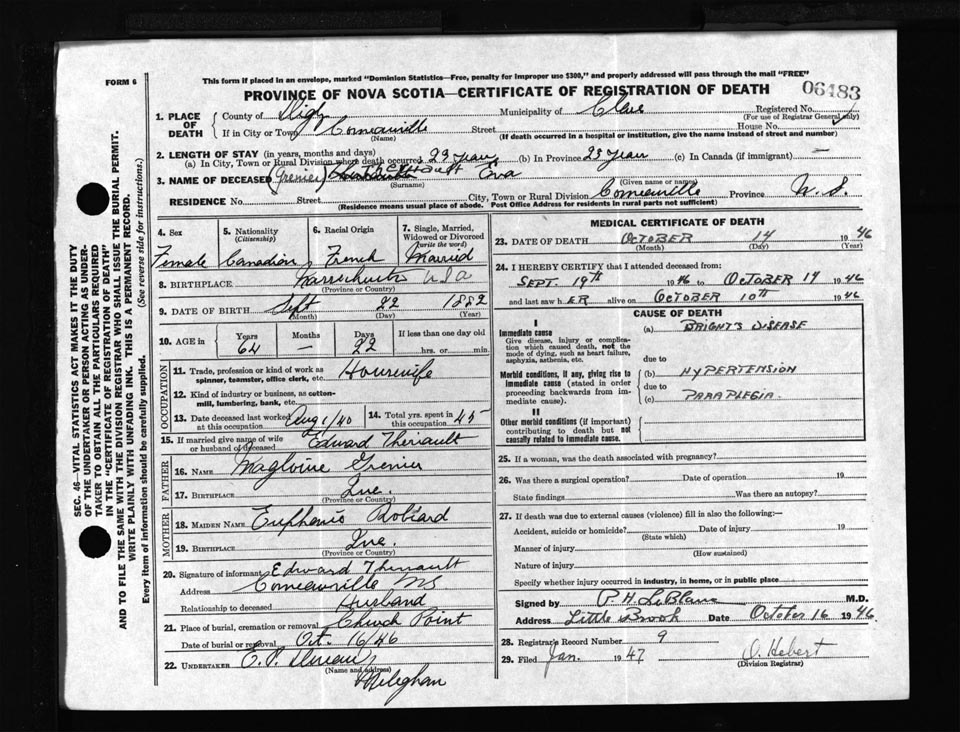 FORM 6
This form if placed in an envelope, marked "Dominion Statistics—Free, penalty for improper use $300," and properly addressed will pass through the mail "FREE"
PROVINCE OF NOVA SCOTIA—CERTIFICATE OF REGISTRATION OF DEATH
06483
1. PLACE OF DEATH
County of Digby Municipality of Clare Registered No.
(For use of Registrar General only)
If in City or Town Comeauville Street House No.
(Name) (If death occurred in a hospital or institution, give the name instead of street and number)
2. LENGTH OF STAY (in years, months and days)
(a) In City, Town or Rural Division where death occurred 29 years (b) In Province 23 years (c) In Canada (if immigrant) —
3. NAME OF DECEASED (Grenier) Theriault Eva
(Surname) (Given name or names)
RESIDENCE No. Street City, Town or Rural Division Comeauville Province N.S.
(Residence means usual place of abode. Post Office Address for residents in rural parts not sufficient)
4. Sex Female
5. Nationality (Citizenship) Canadian
6. Racial Origin French
7. Single, Married, Widowed or Divorced (write the word) Married
8. BIRTHPLACE USA
(Province or Country)
9. DATE OF BIRTH Sept 22 1882
(Month) (Day) (Year)
10. AGE in Years 64 Months — Days 22 If less than one day old hrs. or min.
OCCUPATION
11. Trade, profession or kind of work as spinner, teamster, office clerk, etc. Housewife
12. Kind of industry or business, as cotton-mill, lumbering, bank, etc.
13. Date deceased last worked at this occupation Aug 1/40
14. Total yrs. spent in this occupation 45
15. If married give name of wife or husband of deceased Edward Theriault
FATHER
16. NAME Magloire Grenier
17. BIRTHPLACE Que.
(Province or Country)
MOTHER
18. MAIDEN NAME Euphenie Robiard
19. BIRTHPLACE Que.
(Province or Country)
20. Signature of informant Edward Theriault
Address Comeauville NS
Relationship to deceased Husband
21. Place of burial, cremation or removal Church Point
Date of burial or removal Oct. 16/46
22. UNDERTAKER E. P.
(Name and address)
Meteghan
MEDICAL CERTIFICATE OF DEATH
23. DATE OF DEATH OCTOBER 14 1946
(Month) (Day) (Year)
24. I HEREBY CERTIFY that I attended deceased from:
SEPT. 19TH 1946 to OCTOBER 14 1946
and last saw h ER alive on OCTOBER 10TH 1946
CAUSE OF DEATH
I
Immediate cause (a) BRIGHT'S DISEASE
Give disease, injury or complication which caused death, not the mode of dying, such as heart failure, asphyxia, asthenia, etc.
due to
Morbid conditions, if any, giving rise to immediate cause (stated in order proceeding backwards from immediate cause).
(b) HYPERTENSION
due to
(c) PARAPLEGIA
II
Other morbid conditions (if important) contributing to death but not causally related to immediate cause.
25. If a woman, was the death associated with pregnancy?
26. Was there a surgical operation? Date of operation 19
State findings Was there an autopsy?
27. If death was due to external causes (violence) fill in also the following:—
Accident, suicide or homicide? Date of injury 19
(State which)
Manner of injury
(How sustained)
Nature of injury
Specify whether injury occurred in industry, in home, or in public place
Signed by P. H. LeBlanc M.D.
Address Little Brook Date October 16 1946
28. Registrar's Record Number 9
29. Filed Jan. 1947 O. Hebert
(Division Registrar)
SEC. 46—VITAL STATISTICS ACT MAKES IT THE DUTY
OF THE UNDERTAKER OR PERSON ACTING AS UNDER-
TAKER TO OBTAIN ALL THE PARTICULARS REQUIRED
IN THE "CERTIFICATE OF REGISTRATION OF DEATH"
AND TO FILE THE SAME WITH THE DIVISION REGISTRAR WHO SHALL ISSUE THE BURIAL PERMIT.
WRITE PLAINLY WITH UNFADING INK. THIS IS A PERMANENT RECORD.
Every item of information should be carefully supplied. (See reverse side for instructions.)